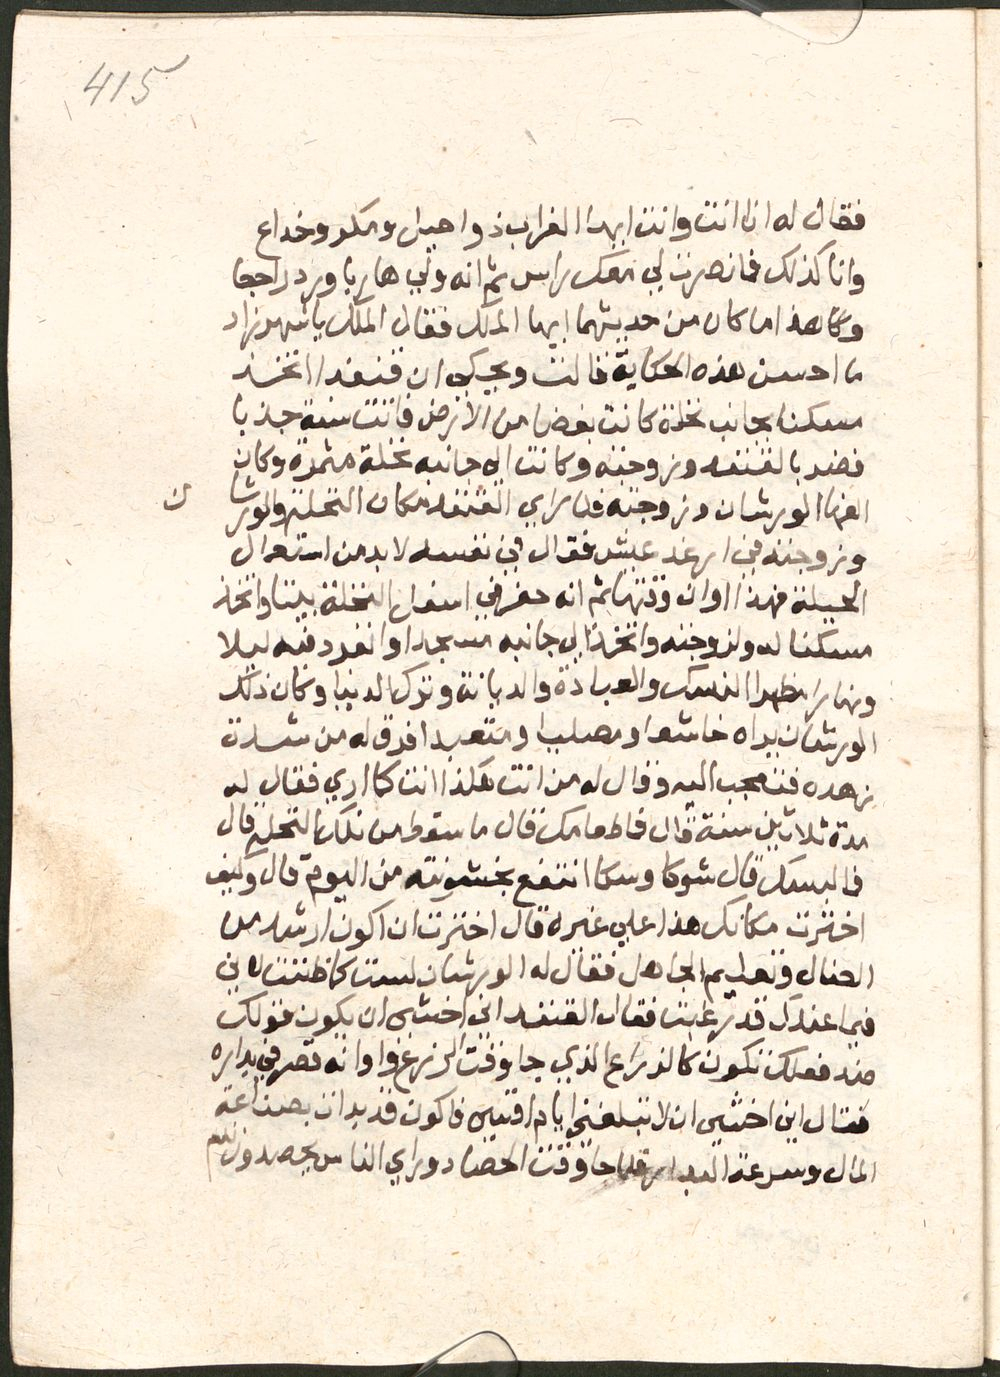 415
فقال له اذا انت وانت ايها الغراب ذوا حيل ومكر وخداع
وانا كذلك فانصرفت لي معك راس ثم انه ولي هاربا ورد راجعا
وكاهذا ما كان من حديثهما ايها الملك فقال الملك يا شهرزاد
ما احسن هذه الحكاية قالت ويحكي ان قنفدا اتخذ
مسكنا بجانب نخلة كانت بعض من الارض فاتت سنة جدبا
فضر بالقنفد وزوجته وكانت الي جانبه نخلة مثمرة وكان
الفها الورشان وزوجته فلما راي القنفد مكان النخلة والورشا
ن
وزوجته في ارغد عيش فقال في نفسه لا بد من استعمال
الحيلة فهذا اوان وقتها ثم انه حفر في اسفل النخلة بيتا واتخذ
مسكنا له ولزوجته واتخذ الي جانبه مسجدا وانفرد فيه ليلا
ونهارا مظهرا النسك والعبادة والديانة وترك الدنيا وكان ذلك
الورشان يراه خاشعا ومصليا ومتعبدا فرق له من شدة
زهده فتعجب اليه وقال له من انت هكذا انت كما اري فقال له
مدة ثلاثين سنة قال فاطعامك قال ما سقط من تلك النخلة قال
فالبسك قال شوكا وسكا انتفع بخشونته من اليوم قال وكيف
اخترت مكانك هذا علي غيره قال اخترت ان اكون ارشد من
الضال وتعليم الجاهل فقال له الورشان لست كما ظننت لاني
فيما عندك قد رغبت فقال القنفد اني اخشي ان يكون قولك
ضد فعلك تكون كالزراع الذي جا وقت الزرع وانه قصر في بداره
فقال اني اخشي ان لا تبلغني ايام فاكون قد بدات بضاعة
المال وسرعة البدار فلما جا وقت الحصاد وراي الناس يحصدون